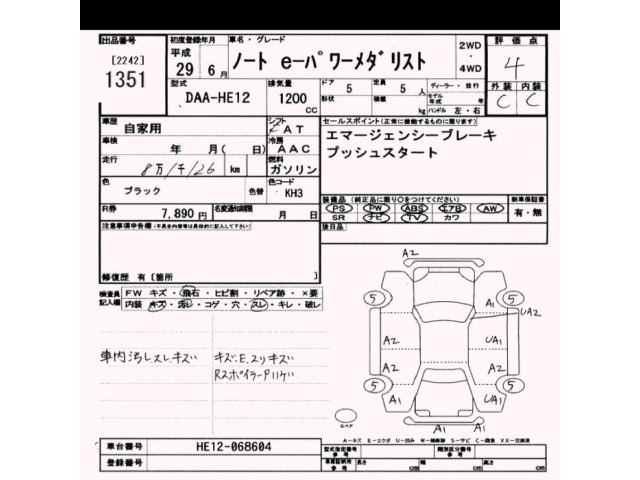 出品番号
[2242]
1351
初度登録年月
平成
29 6月
車名・グレード
ノート e-パワーメダリスト
2WD
・
4WD
評価点
4
型式
DAA-HE12
排気量
1200
CC
ドア
5
形状
定員
5 人
積載
kg
ディーラー・並行
モデル年式 年
ハンドル 左・右
外装 内装
C C
車歴
自家用
シフト
AT
セールスポイント(正常に接続するものに限ります)
エマージェンシーブレーキ
プッシュスタート
車検
年 月( 日)
冷房
AAC
走行
8万1千126 km
燃料
ガソリン
色
ブラック
色替
色コード
KH3
R券
7,890円
名変通知期限
月 日
装備品(純正品に限り○をつけてください)
PS PW ABS エアB AW
SR ナビ TV カワ
新車保証書
有・無
注意事項申告欄(不具合内容等は具体的に記入して下さい)
後日品
修復歴 有[箇所 ]
検査員記入欄
FW キズ・飛石・ヒビ割・リペア跡・×要
内装 キズ・汚レ・コゲ・穴・スレ・キレ・破レ
車内汚レスレキズ
キズ.E.スリキズ
RスポイラーPハゲ
A2
5
A1
5
UA2
A2
UA1
A2
A2
5
UA1
5
A1
A1
スペア
A-キズ E-エクボ U-凹み W-補修跡 S-サビ C-腐食 XX-交換済
車台番号
HE12-068604
登録番号
型式指定番号
参考
類別区分番号
参考
車庫証明用
参考
長さ cm
幅 cm
高さ cm